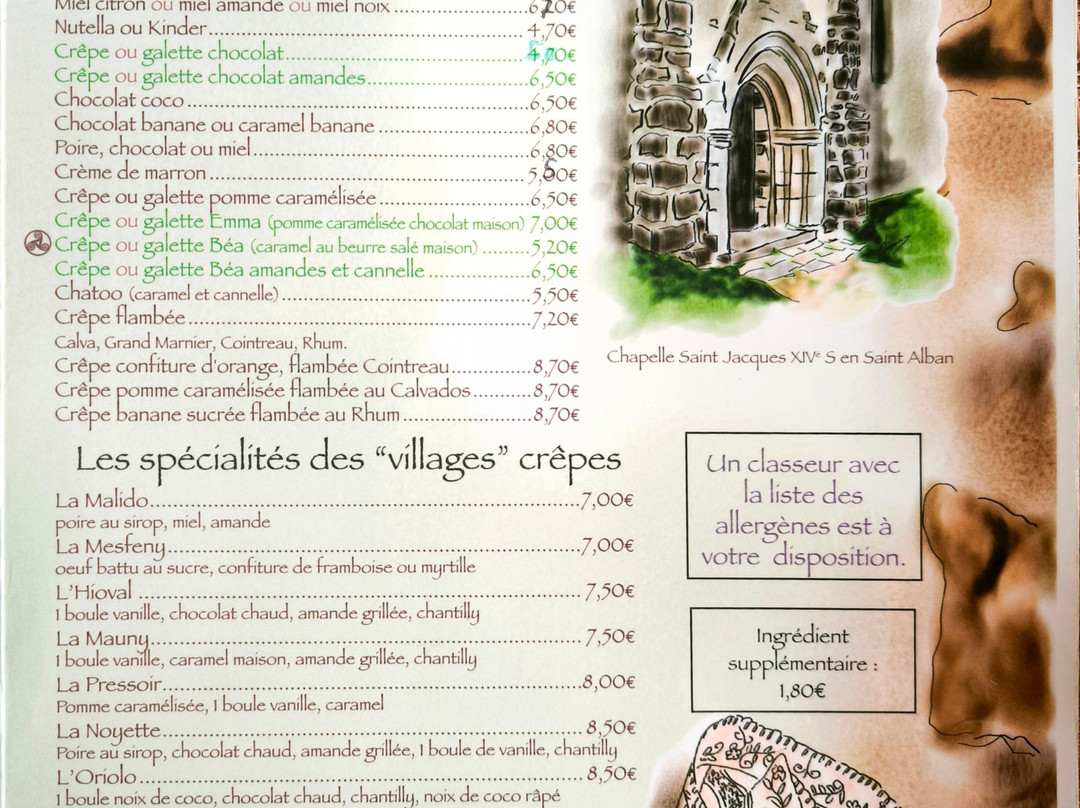 Miel citron ou miel amande ou miel noix
Nutella ou Kinder 4,70€
Crêpe ou galette chocolat 4,70€
Crêpe ou galette chocolat amandes 6,50€
Chocolat coco 6,50€
Chocolat banane ou caramel banane 6,80€
Poire, chocolat ou miel 6,80€
Crème de marron
Crêpe ou galette pomme caramélisée 6,50€
Crêpe ou galette Emma (pomme caramélisée chocolat maison) 7,00€
Crêpe ou galette Béa (caramel au beurre salé maison) 5,20€
Crêpe ou galette Béa amandes et cannelle 6,50€
Chatoo (caramel et cannelle) 5,50€
Crêpe flambée 7,20€
Calva, Grand Marnier, Cointreau, Rhum.
Crêpe confiture d'orange, flambée Cointreau 8,70€
Crêpe pomme caramélisée flambée au Calvados 8,70€
Crêpe banane sucrée flambée au Rhum 8,70€
Chapelle Saint Jacques XIVe S en Saint Alban
Les spécialités des "villages" crêpes
La Malido 7,00€
poire au sirop, miel, amande
La Mesfeny 7,00€
oeuf battu au sucre, confiture de framboise ou myrtille
L'Hioval 7,50€
1 boule vanille, chocolat chaud, amande grillée, chantilly
La Mauny 7,50€
1 boule vanille, caramel maison, amande grillée, chantilly
La Pressoir 8,00€
Pomme caramélisée, 1 boule vanille, caramel
La Noyette 8,50€
Poire au sirop, chocolat chaud, amande grillée, 1 boule de vanille, chantilly
L'Oriolo 8,50€
1 boule noix de coco, chocolat chaud, chantilly, noix de coco râpé
Un classeur avec
la liste des
allergènes est à
votre disposition.
Ingrédient
supplémentaire :
1,80€